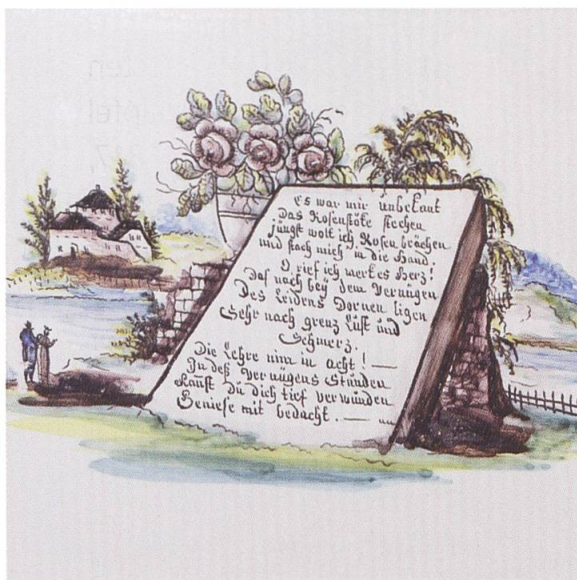 Es war mir unbekant
Das Rosenstöke stechen
jüngst wolt ich Rosen bröchen
und stach mich in die Hand.
O rief ich merk es Herz!
Daß nach bey dem Vernügen
Des Leidens Dornen ligen
Sehr nach grenz Lust und
Schmerz.
Die Lehre nim in acht! —
In deß Vernügens Stunden
Kanst Du dich tief verwunden
Geniese mit bedacht. —